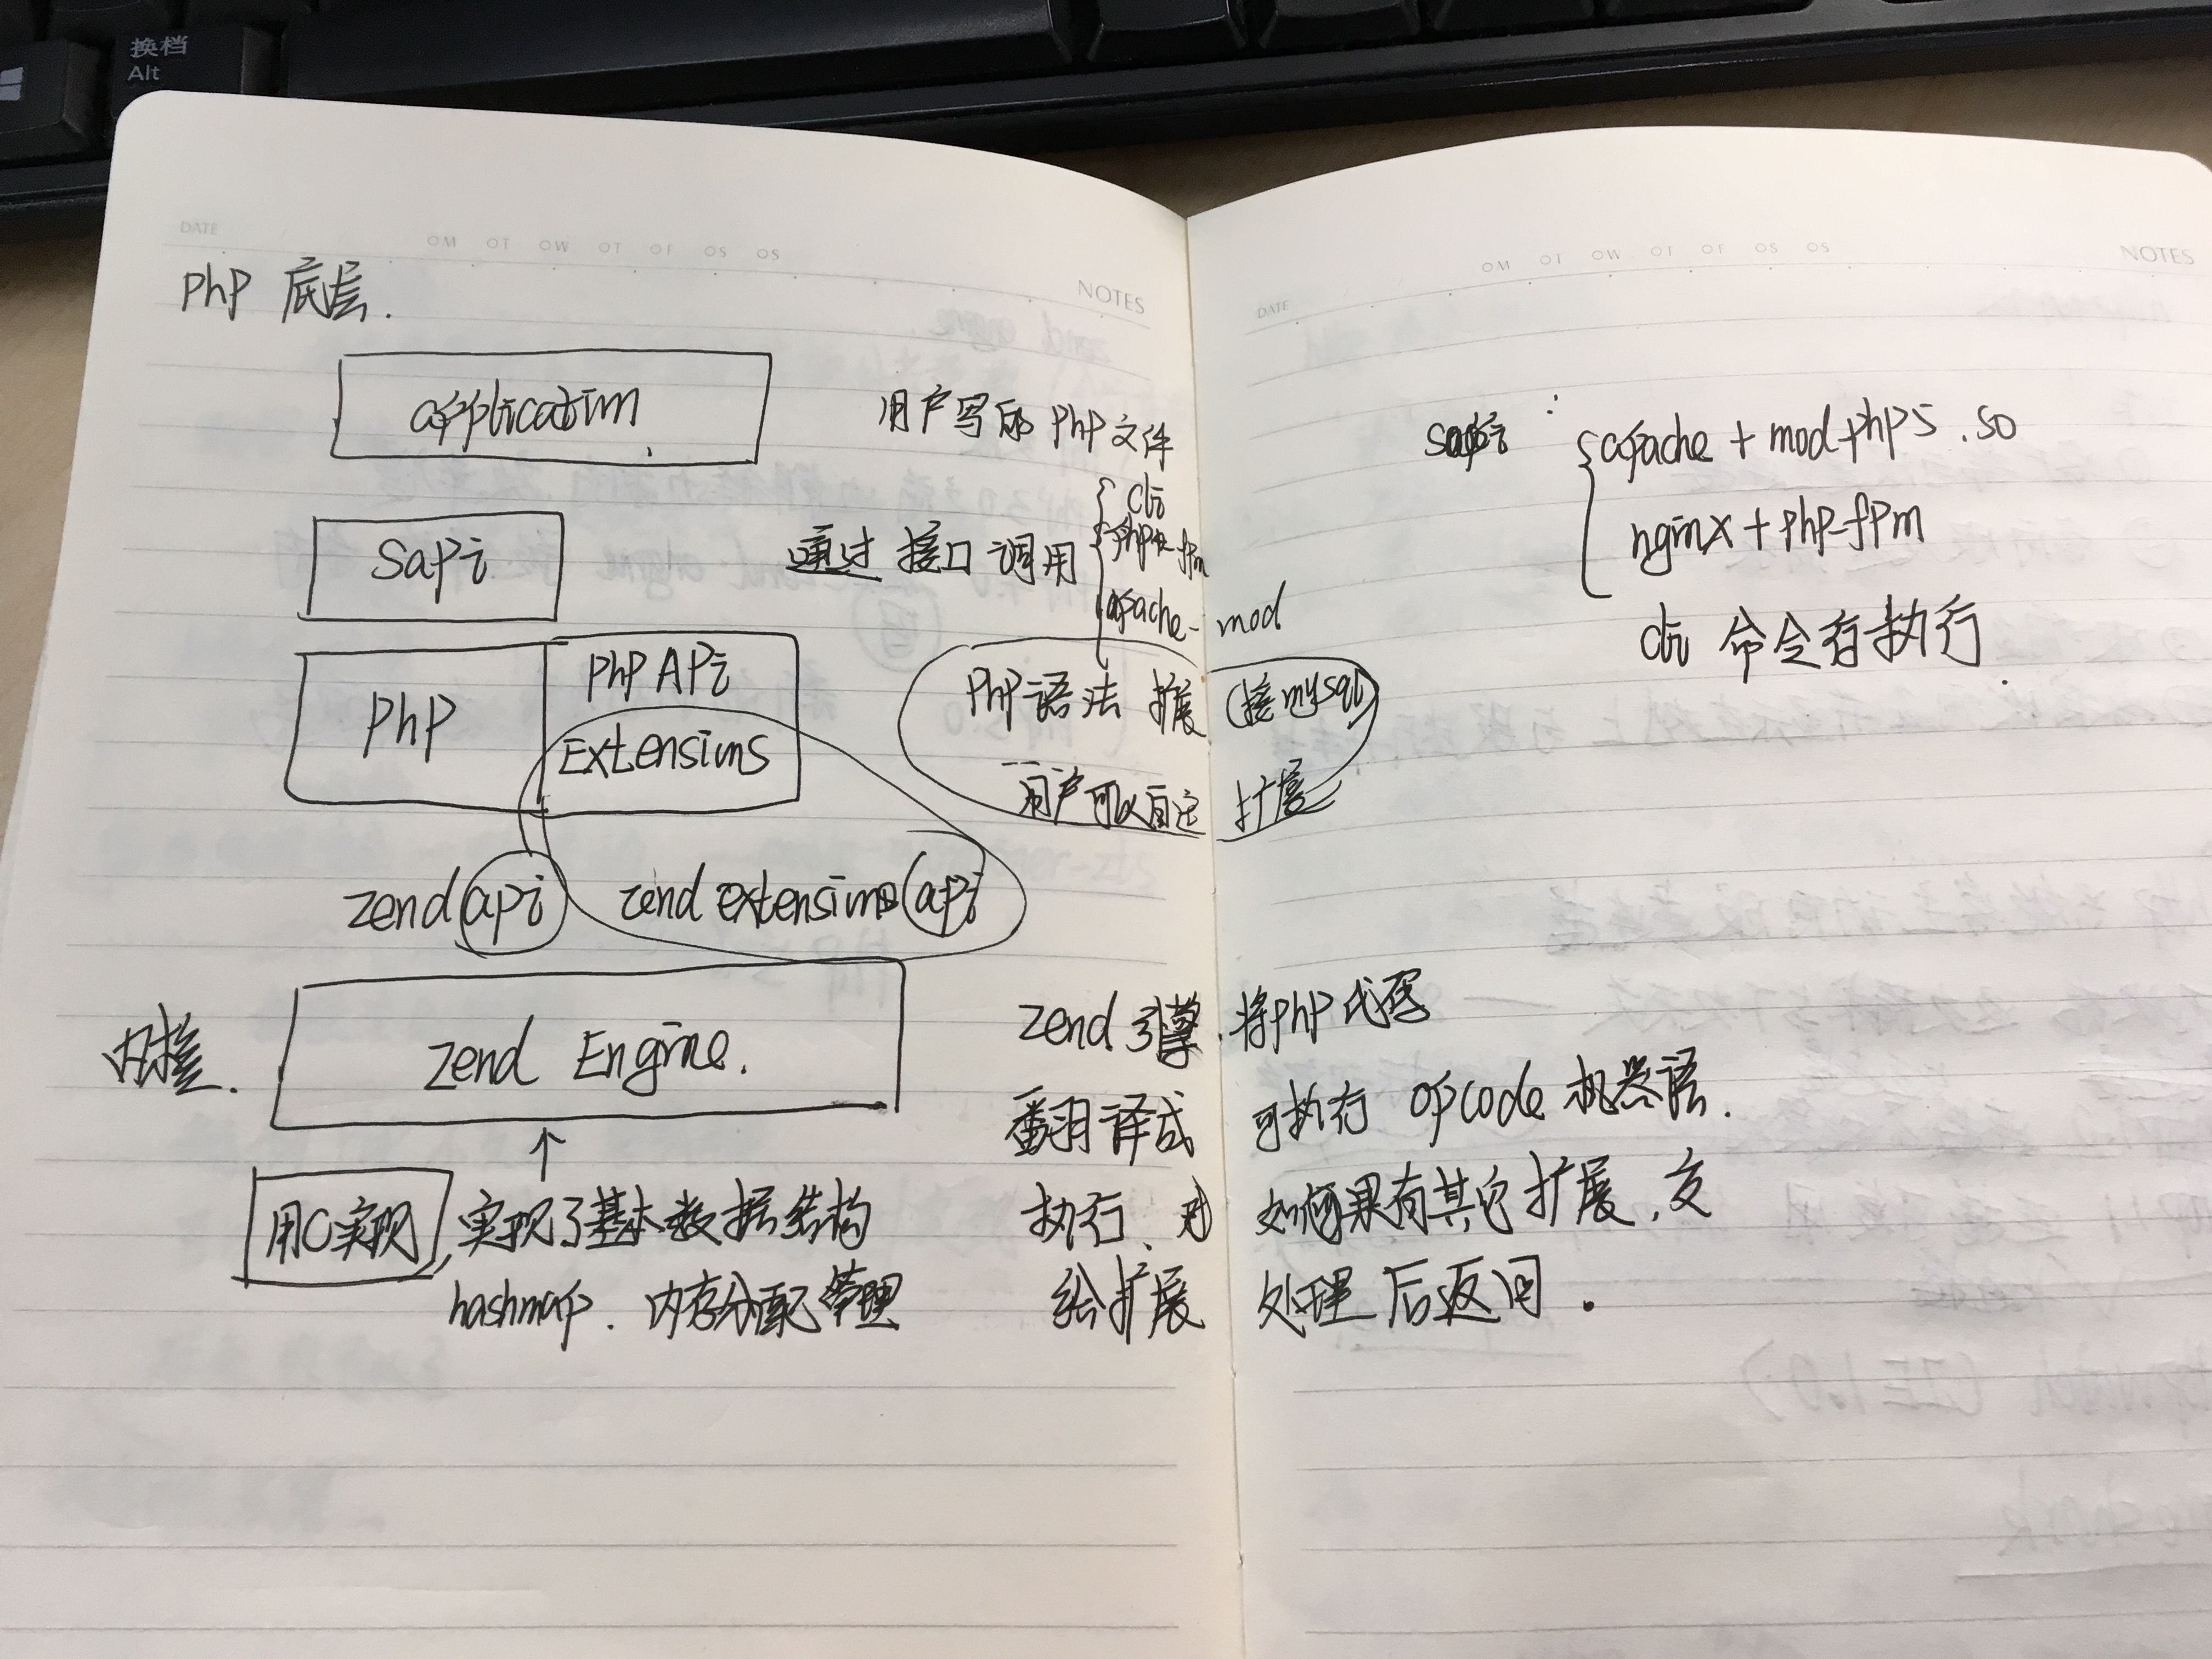 换档
Alt
DATE
OM OT OW OT OF OS OS
NOTES
php 底层.
application
用户写的 php文件
Sapi
通过 接口 调用
cli
php-fpm
apache-mod
php
php APi
Extensions
php 语法 扩展 (接mysql)
用户可以自定 扩展
zend api
zend extensions api
内核.
zend Engine.
zend 引擎. 将php代码
翻译成 可执行 opcode 机器语.
执行. 如果有其它扩展, 交
给扩展 处理后返回.
用C实现, 实现了基本数据结构
hashmap. 内存分配管理
OM OT OW OT OF OS OS
NOTES
DATE
sapi :
apache + mod_php5.so
nginx + php-fpm
cli 命令行执行.